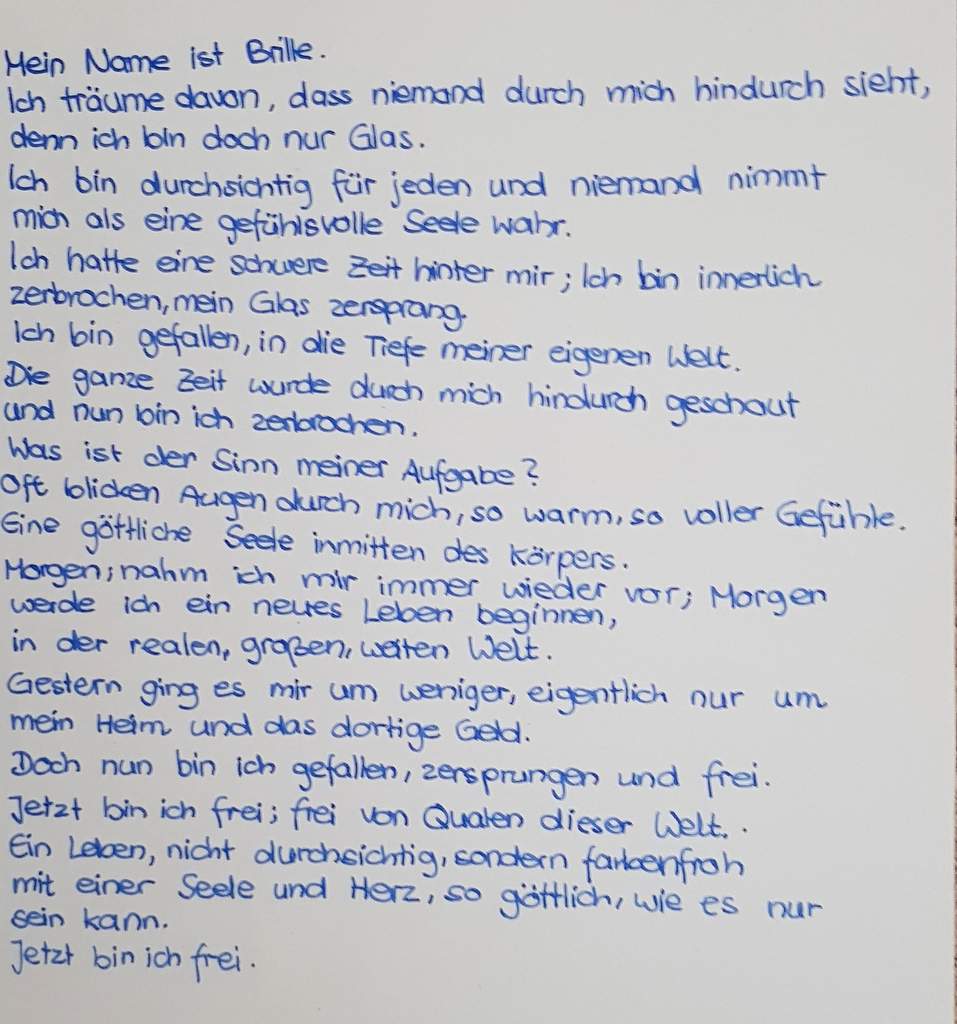 Mein Name ist Brille.
Ich träume davon, dass niemand durch mich hindurch sieht,
denn ich bin doch nur Glas.
Ich bin durchsichtig für jeden und niemand nimmt
mich als eine gefühlsvolle Seele wahr.
Ich hatte eine schwere Zeit hinter mir; Ich bin innerlich
zerbrochen, mein Glas zersprang.
Ich bin gefallen, in die Tiefe meiner eigenen Welt.
Die ganze Zeit wurde durch mich hindurch geschaut
und nun bin ich zerbrochen.
Was ist der Sinn meiner Aufgabe?
Oft blicken Augen durch mich, so warm, so voller Gefühle.
Eine göttliche Seele inmitten des Körpers.
Morgen; nahm ich mir immer wieder vor; Morgen
werde ich ein neues Leben beginnen,
in der realen, großen, weiten Welt.
Gestern ging es mir um weniger, eigentlich nur um
mein Heim und das dortige Geld.
Doch nun bin ich gefallen, zersprungen und frei.
Jetzt bin ich frei; frei von Qualen dieser Welt..
Ein Leben, nicht durchsichtig, sondern farbenfroh
mit einer Seele und Herz, so göttlich, wie es nur
sein kann.
Jetzt bin ich frei.